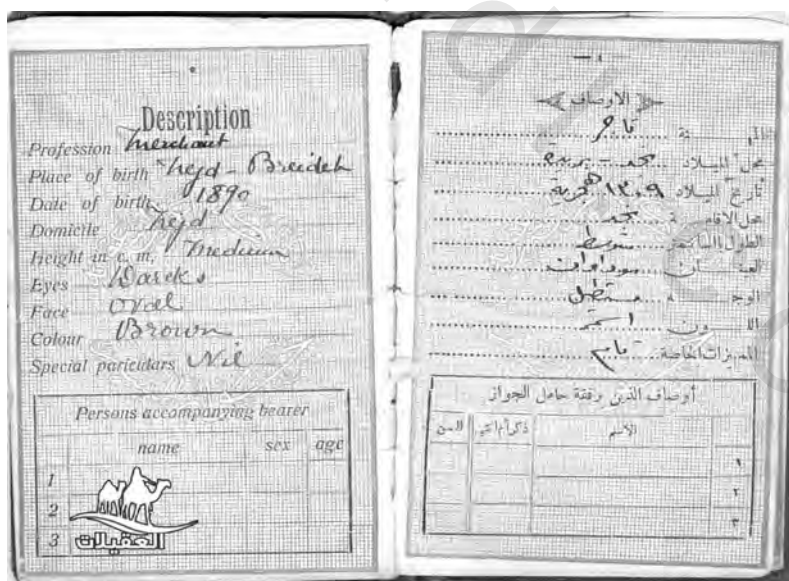 Description
Profession Merchant
Place of birth Nejd - Breideh
Date of birth 1890
Domicile Nejd
Height in c. m, Medium
Eyes Darcks
Face Oval
Colour Brown
Special pariculars Nil
Persons accompanying bearer
name sex age
1
2
3
العقيلات
— ٤ —
الاوصاف
المهنة تاجر
محل الميلاد نجد - بريده
تاريخ الميلاد ١٣٠٩ هجرية
محل الاقامة نجد
متوسط
العينان سوداوان
الوجه مستطيل
اللون اسمر
المميزات الخاصة تام
أوصاف الذين رفقة حامل الجواز
الاسم ذكر أم انثى السن
١
٢
٣